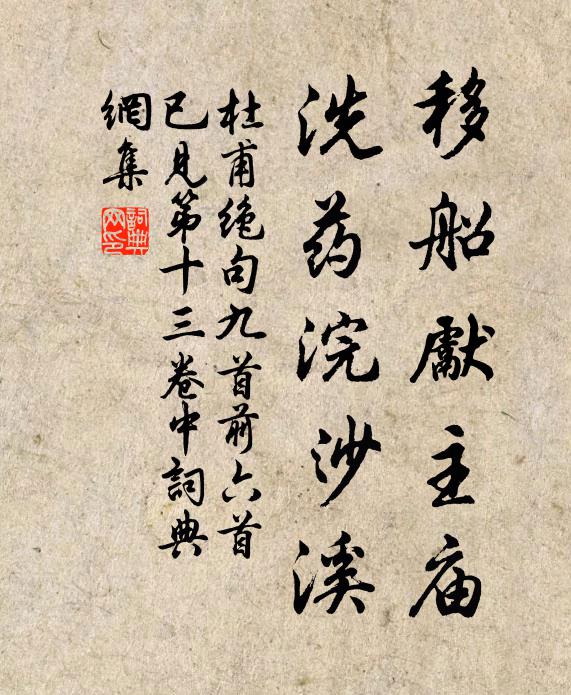 移船獻主庙
洗药浣沙溪
杜甫绝句九首前六首
已見第十三卷中詞典
網集
詞典网印